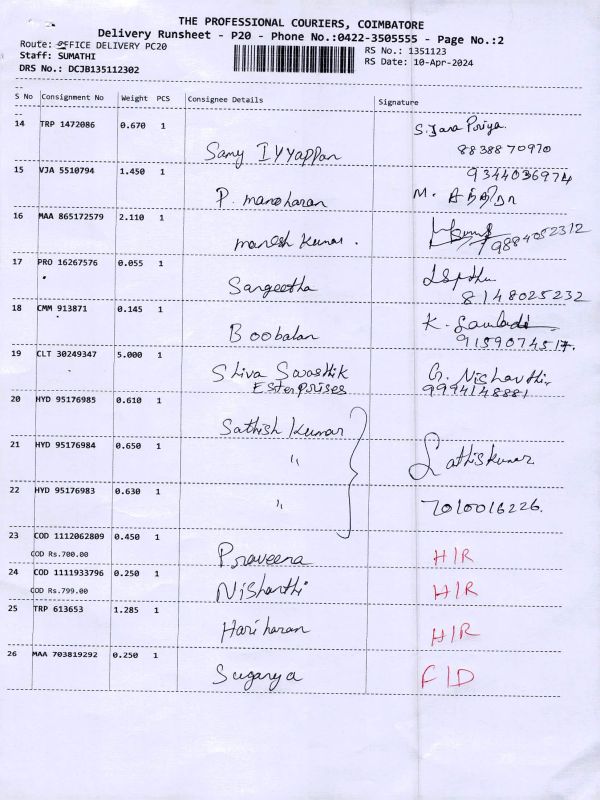 THE PROFESSIONAL COURIERS, COIMBATORE
Delivery Runsheet - P20 - Phone No.:0422-3505555 - Page No.:2
Route: OFFICE DELIVERY PC20
RS No.: 1351123
Staff: SUMATHI
RS Date: 10-Apr-2024
DRS No.: DCJB135112302
S No Consignment No Weight PCS Consignee Details Signature
14 TRP 1472086 0.670 1 Samy Iyyappan S. Jaya Priya.
8838870970
15 VJA 5510794 1.450 1 P. manoharan 9344036974
M.
16 MAA 865172579 2.110 1 manesh kumar. 9884052312
17 PRO 16267576 0.055 1 Sangeetha
8148025232
18 CMM 913871 0.145 1 Boobalan K.
9159074517.
19 CLT 30249347 5.000 1 Shiva Swasthik G. Nishanthi
Esterprises 9994148881
20 HYD 95176985 0.610 1 Sathish Kumar
21 HYD 95176984 0.650 1 " Sathiskumar
22 HYD 95176983 0.630 1 " 7010016226.
23 COD 1112062809 0.450 1 Praveena H/R
COD Rs.700.00
24 COD 1111933796 0.250 1 Nishanthi H/R
COD Rs.799.00
25 TRP 613653 1.285 1 Hari haran H/R
26 MAA 703819292 0.250 1 Suganya F/D